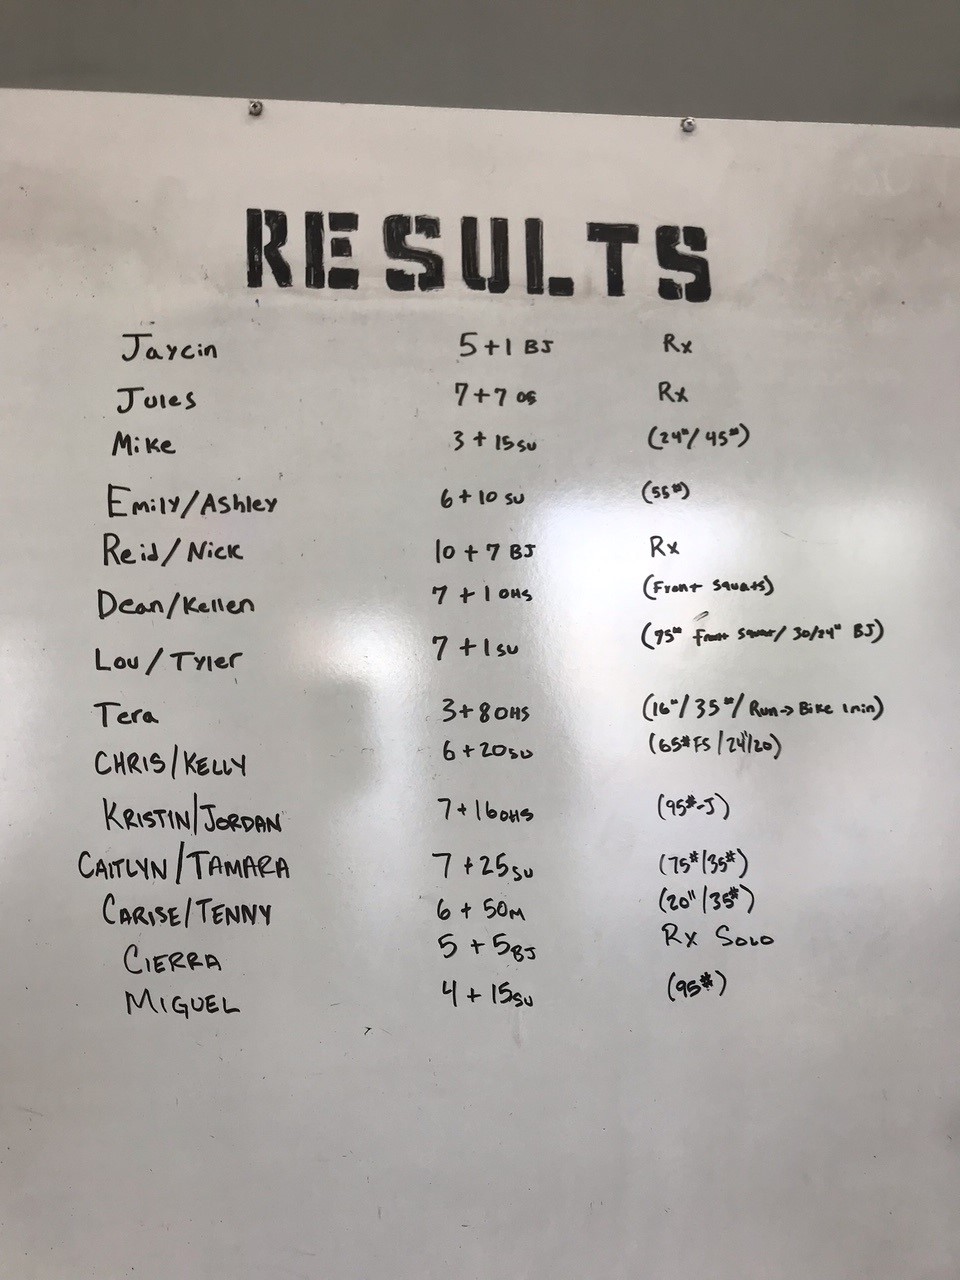 RESULTS
Jaycin 5+1 BJ Rx
Jules 7+7 OS Rx
Mike 3+15 SU (24"/45#)
Emily/Ashley 6+10 SU (55#)
Reid/Nick 10+7 BJ Rx
Dean/Kellen 7+1 OHS (Front Squats)
Lou/Tyler 7+1 SU (95# Front Squat/30/24" BJ)
Tera 3+8 OHS (16"/35#/Run->Bike 1min)
CHRIS/KELLY 6+20 SU (65# FS/24"/20)
KRISTIN/JORDAN 7+16 OHS (95#-J)
CAITLYN/TAMARA 7+25 SU (75#/35#)
CARISE/TENNY 6+50M (20"/35#)
CIERRA 5+5 BJ Rx SOLO
MIGUEL 4+15 SU (95#)